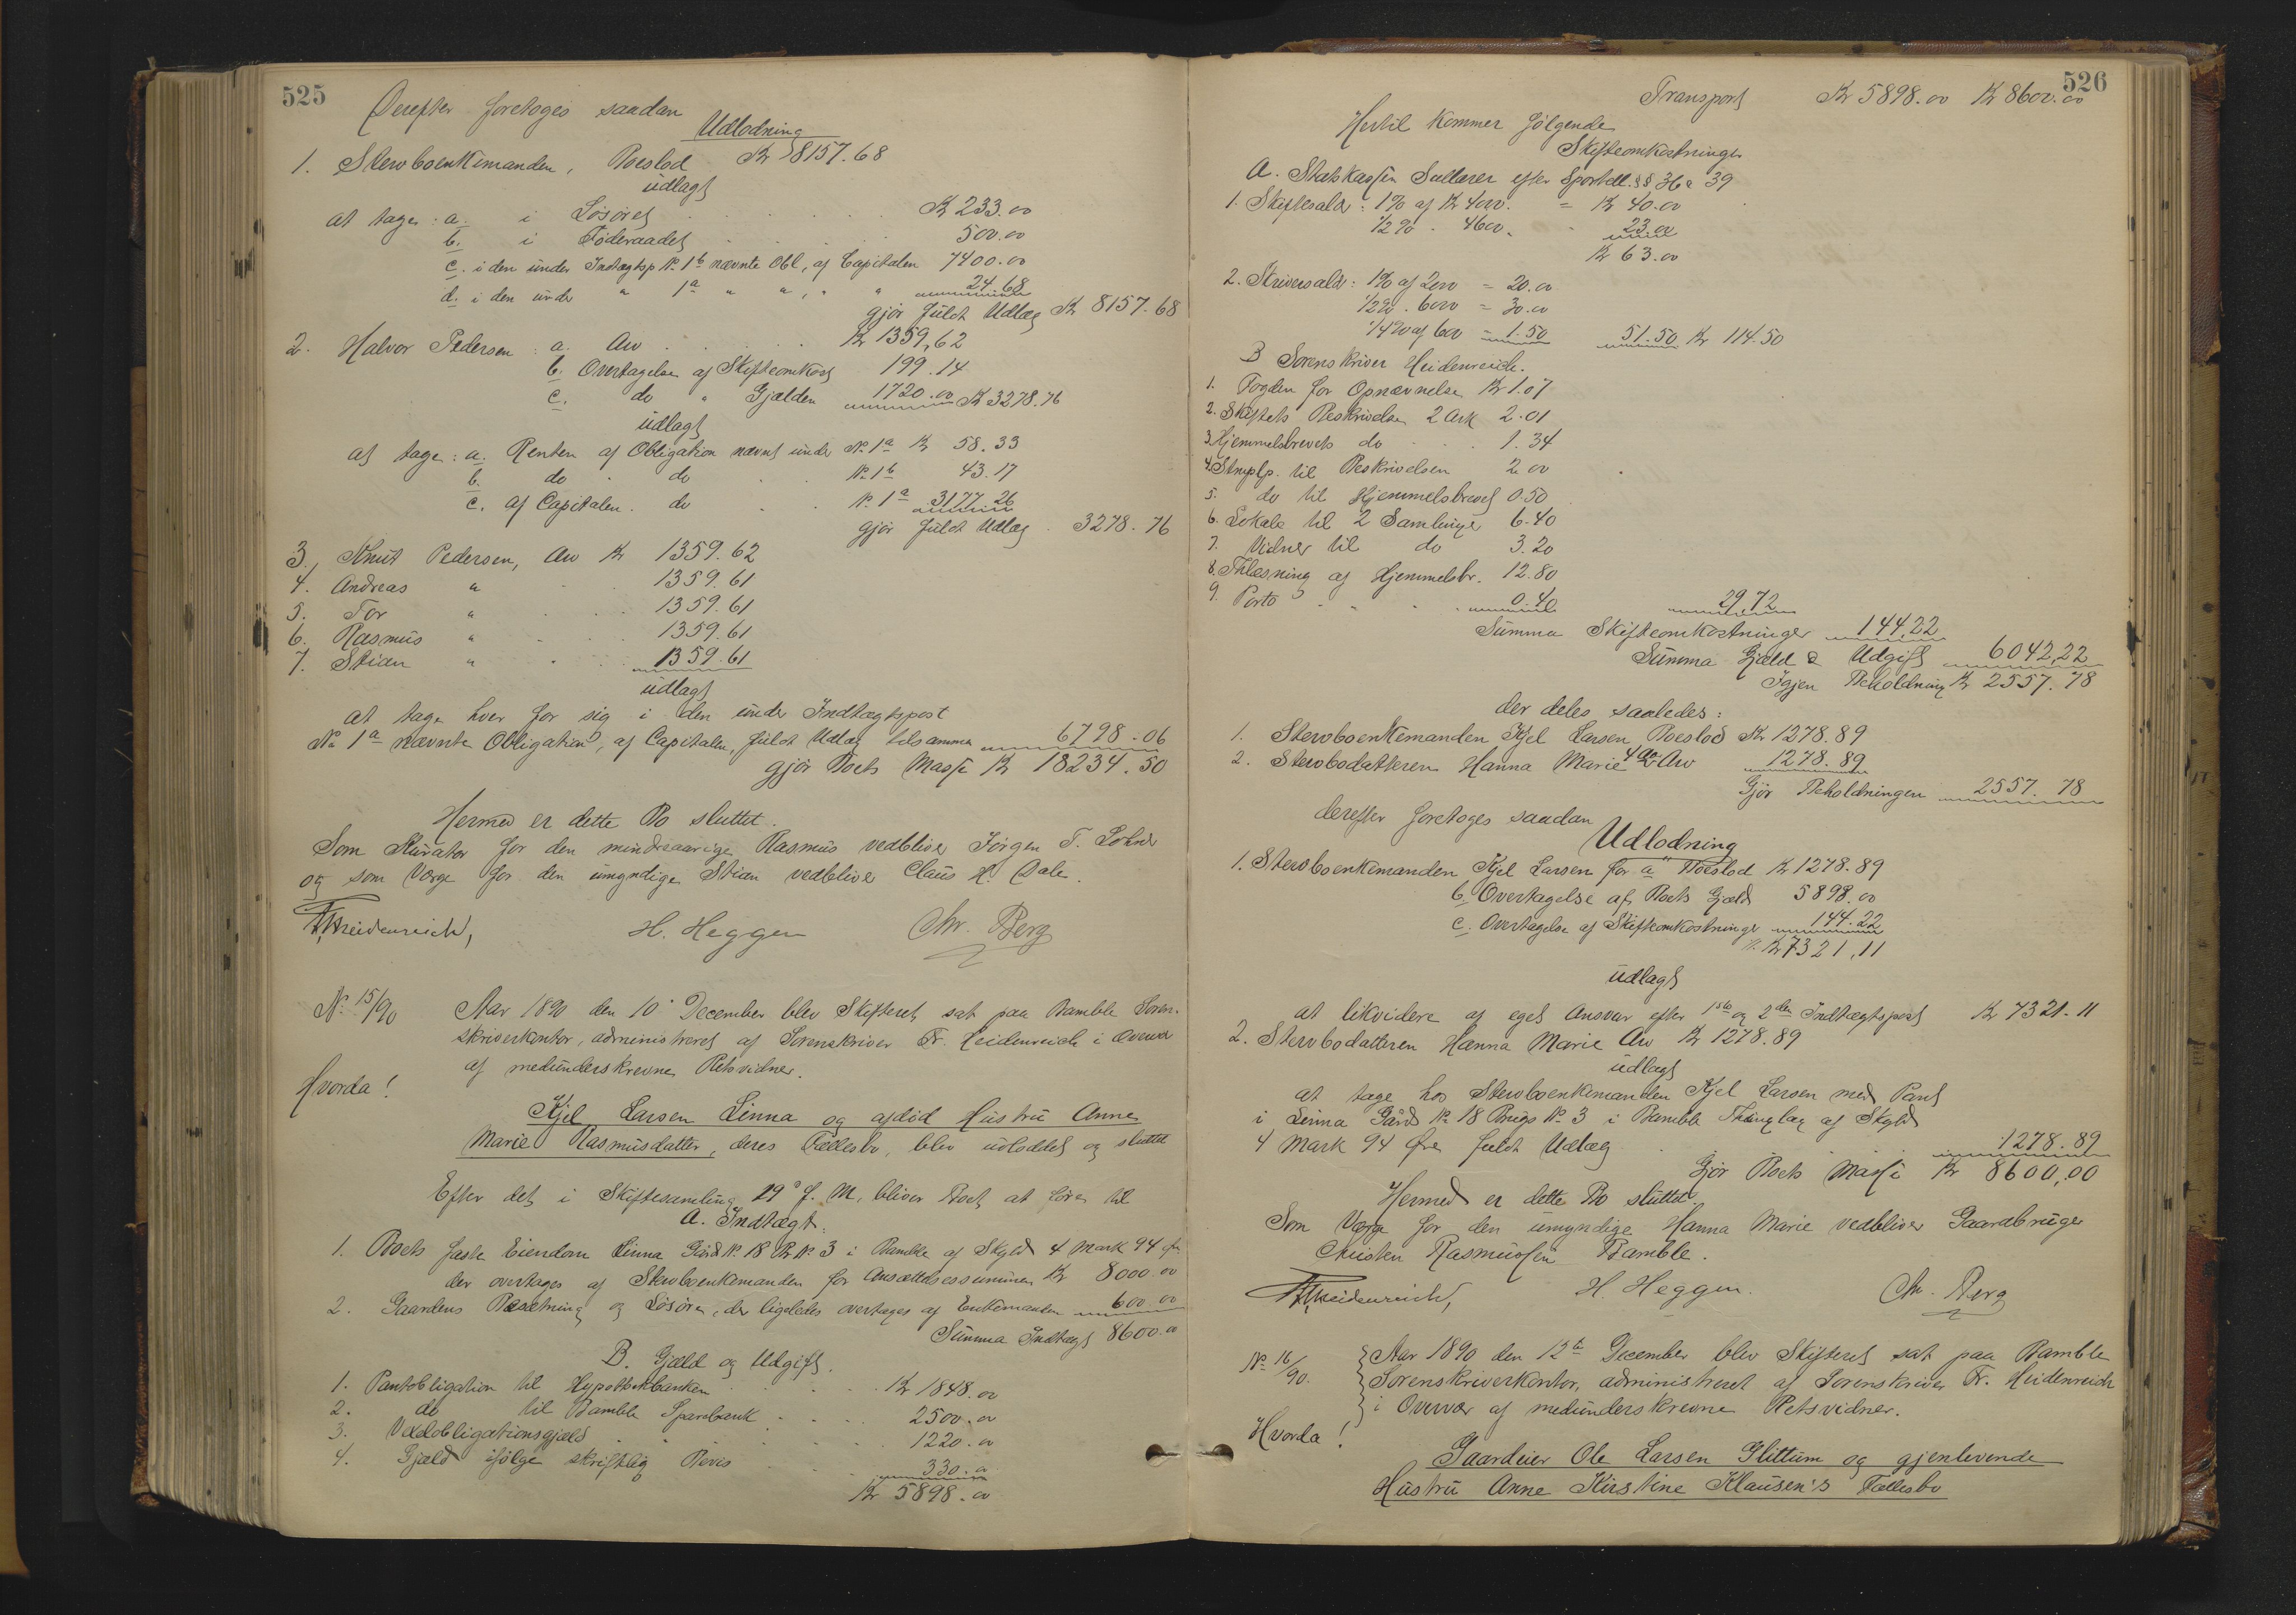 525
Derefter foretoges saadan
Udlodning
1. Stervboenkemanden, Boeslod Kr 8157.68
udlagt
at tage: a. i Løsøret Kr 233.00
b. i Föderaadet 500.00
c. i den under Indtægtsp. No 1b nævnte Obl, af Capitalen 7400.00
d. i den under " 1a " " , " " 24.68
gjör fuldt Udlæg Kr 8157.68
2. Halvor Pedersen: a. Arv Kr 1359,62
b. Overtagelse af Skifteomkost 199.14
c. do " Gjælden 1720.00 Kr 3278.76
udlagt
at tage: a. Renten af Obligation nævnt under No 1a Kr 58.33
b. do . do . . No 1b 43.17
c. Af Capitalen . do . . No 1a 3177.26
gjör fuldt Udlæg . 3278.76
3. Knut Pedersen, Arv Kr 1359.62
4. Andreas " 1359.61
5. Tor " 1359.61
6. Rasmus " 1359.61
7. Stian " 1359.61
udlagt
at tage hver for sig i den under Indtægtspost
No 1a nævnte Obligation, af Capitalen, fuldt Udlæg tilsammen 6798.06
gjör Boets Masse Kr 18234.50
Hermed er dette Bo sluttet.
Som Kurator for den mindreaarige Rasmus vedbliver Jörgen T.
og som Værge for den umyndige Stian vedbliver Claus H. Dale.
Fr Heidenreich, H. Heggen Chr. Berg
No 15/90 Aar 1890 den 10' December blev Skifteret sat paa Bamble Soren-
skriverkontor, administreret af Sorenskriver Fr. Heidenreich i Overvær
af medunderskrevne Retsvidner.
Hvorda!
Kjel Larsen Linna og afdöd Hustru Anne
Marie Rasmusdatter, deres Fællesbo, blev udloddet og sluttet
Efter det i Skiftesamling 29' f. M. bliver Boet at före til
A. Indtægt.
1. Boets faste Eiendom Linna Gård No 18 Br No 3 i Bamble af Skyld 4 Mark 94 öre
der overtages af Stervboenkemanden for Ansættelsessummen Kr 8000.00
2. Gaardens Besætning og Lösöre, der ligeledes overtages af Enkemanden 600.00
Summa Indtægt 8600.00
B. Gjæld og Udgift.
1. Pantobligation til Hypothekbanken Kr 1848.00
2. do til Bamble Sparebank 2500.00
3. Vexelobligationsgjæld 1220.00
4. Gjæld ifölge skriftlig Bevis 330.00
Kr 5898.00
526
Transport Kr 5898.00 Kr 8600.00
Hertil kommer fölgende
Skifteomkostninger
A. Statskassen Sallarer efter Sportell. §§ 36 & 39
1. Skiftesalær: 1% af Kr 4000. = Kr 40.00
1/2% . 4600. " 23.00
Kr 63.00
2. Skriversalær: 1% af 2000 = 20.00
1/2% . 6000 = 30.00
1/4% af 600 = 1.50 51.50 Kr 114.50
B Sorenskriver Heidenreich.
1. Fogden for Opnævnelse Kr 1.07
2. Skiftets Beskrivelse 2 Ark 2.01
3. Hjemmelsbrevets do . . 1.34
4. Stmplp. til Beskrivelsen 2.00
5. do til Hjemmelsbrevet 0.50
6. Lokale til 2 Samlinger 6.40
7. Vidner til do 3.20
8. Thlæsning af Hjemmelsbr. 12.80
9. Porto 0.40 29,72
Summa Skifteomkostninger 144,22
Summa Gjæld & Udgift 6042,22
Igjen Beholdning Kr 2557.78
der deles saaledes:
1. Stervboenkemanden Kjel Larsen Boeslod Kr 1278.89
2. Stervbodatteren Hanna Marie 4 Arv 1278.89
Gjör Beholdningen 2557.78
derefter foretoges saadan
Udlodning
1. Stervboenkemanden Kjel Larsen for a" Boeslod Kr 1278.89
b. Overtagelse af Boets Gjæld 5898.00
c. Overtagelse af Skifteomkostninger 144.22
Kr 7321,11
udlagt
at likvidere af eget Ansvar efter 1ste og 2den Indtægtspost Kr 7321.11
2. Stervbodatteren Hanna Marie Arv Kr 1278.89
udlagt
at tage hos Stervboenkemanden Kjel Larsen med Pant
i Linna Gård No 18 Brugs No 3 i Bamble Thinglag af Skyld
4 Mark 94 Öre fuldt Udlæg 1278.89
Gjör Boets Masse Kr 8600,00
Hermed er dette Bo sluttet.
Som Værge for den umyndige Hanna Marie vedbliver Gaardbruger
Christen Rasmussen Bamble.
Fr Heidenreich, H. Heggen. Chr. Berg
No 16/90. Aar 1890 den 12te December blev Skifteret sat paa Bamble
Sorenskriverkontor, administreret af Sorenskriver Fr. Heidenreich
i Overvær af medunderskrevne Retsvidner.
Hvorda!
Gaardeier Ole Larsen Glittum og gjenlevende
Hustru Anne Kirstine Klausen's Fællesbo